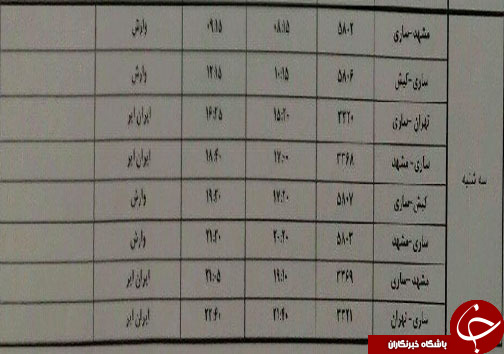 سه شنبه
مشهد-ساری ۵۸۰۲ ۰۸:۱۵ ۰۹:۱۵ وارش
ساری-کیش ۵۸۰۶ ۱۰:۱۵ ۱۲:۱۵ وارش
تهران-ساری ۳۳۲۰ ۱۵:۲۰ ۱۶:۲۵ ایران ایر
ساری-مشهد ۳۳۶۸ ۱۷:۰۰ ۱۸:۴۰ ایران ایر
کیش-ساری ۵۸۰۷ ۱۷:۲۰ ۱۹:۲۰ وارش
ساری-مشهد ۵۸۰۳ ۲۰:۲۰ ۲۱:۲۰ وارش
مشهد-ساری ۳۳۶۹ ۱۹:۱۰ ۲۱:۰۵ ایران ایر
ساری-تهران ۳۳۲۱ ۲۱:۴۰ ۲۲:۴۰ ایران ایر
باشگاه خبرنگاران